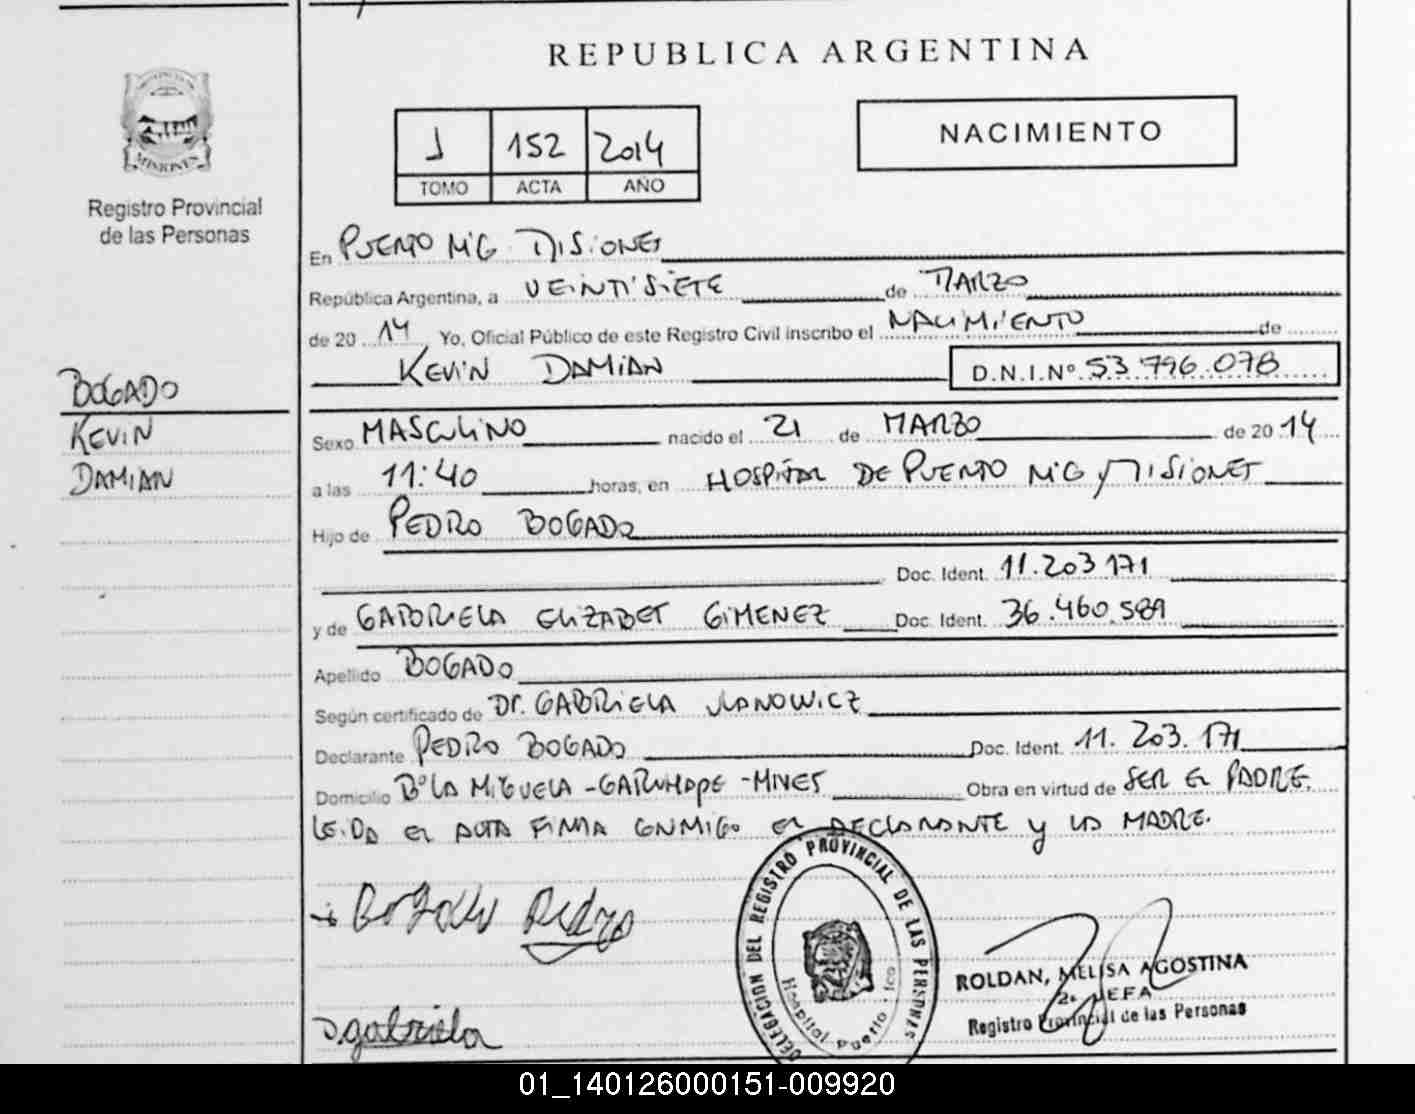 REPUBLICA ARGENTINA
MISIONES
Registro Provincial
de las Personas
J 152 2014
TOMO ACTA AÑO
NACIMIENTO
En PUERTO RICO MISIONES
República Argentina, a VEINTISIETE de MARZO
de 20 14 Yo, Oficial Público de este Registro Civil inscribo el NACIMIENTO de
KEVIN DAMIAN D.N.I.Nº 53.796.078
BOGADO
KEVIN
DAMIAN
Sexo MASCULINO nacido el 21 de MARZO de 20 14
a las 11:40 horas, en HOSPITAL DE PUERTO RICO MISIONES
Hijo de PEDRO BOGADO
Doc. Ident. 11.203.171
y de GABRIELA ELIZABET GIMENEZ Doc. Ident. 36.460.589
Apellido BOGADO
Según certificado de Dr. GABRIELA
Declarante PEDRO BOGADO Doc. Ident. 11.203.171
Domicilio Bº LA MIGUELA - GARUHAPE - MNES Obra en virtud de SER EL PADRE.
LEIDA EL ACTA FIRMA CONMIGO EL DECLARANTE Y LA MADRE.
Bogado Pedro
gabriela
DELEGACION DEL REGISTRO PROVINCIAL DE LAS PERSONAS
Hospital Puerto Rico
ROLDAN, MELISA AGOSTINA
2a JEFA
Registro Provincial de las Personas
01_140126000151-009920